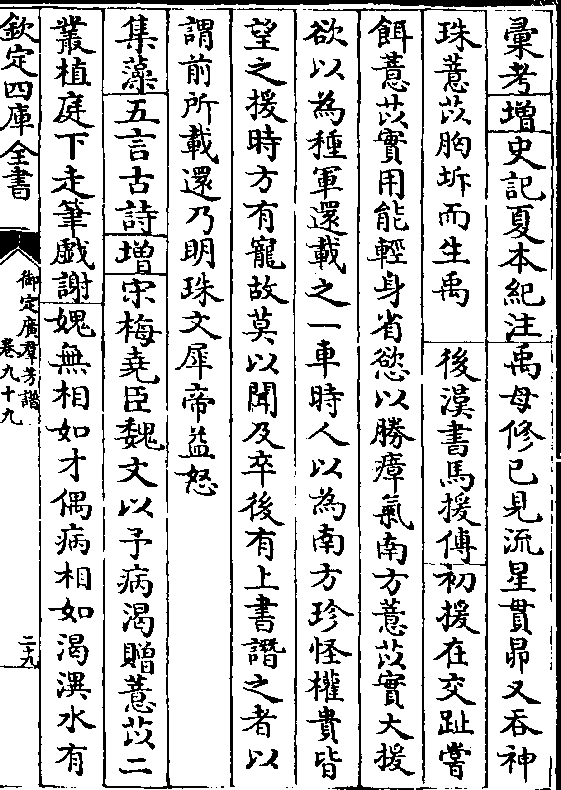 彚考增史記夏本紀注禹母修己見流星貫昴又吞神
珠薏苡胸坼而生禹　後漢書馬援傳初援在交趾嘗
餌薏苡實用能輕身省慾以勝瘴氣南方薏苡實大援
欲以為種軍還載之一車時人以為南方珍怪權貴皆
望之援時方有寵故莫以聞及卒後有上書譖之者以
謂前所載還乃明珠文犀帝益怒
集藻五言古詩增宋梅堯臣魏文以予病渴贈薏苡二
叢植庭下走筆戲謝媿無相如才偶病相如渴潩水有
欽定四庫全書
御定廣羣芳譜
卷九十九
二九